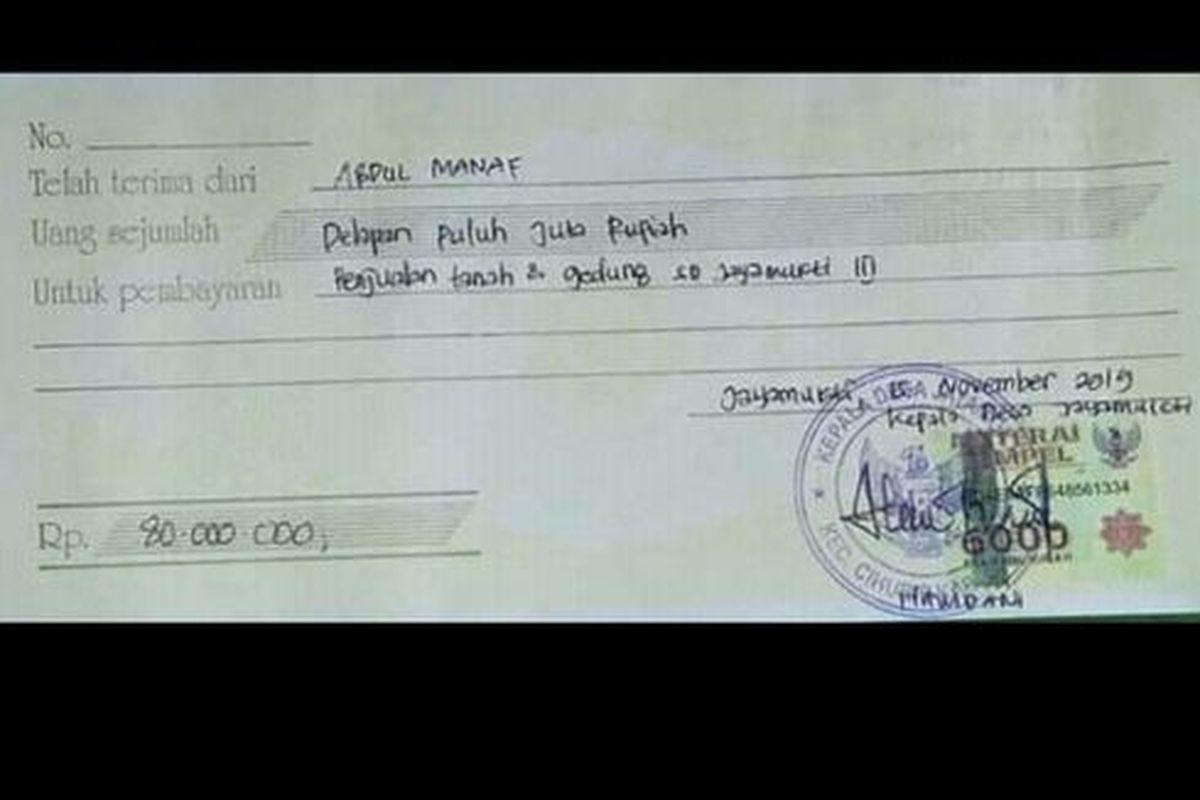 No.
Telah terima dari ABDUL MANAF
Uang sejumlah Delapan puluh Juta Rupiah
Untuk pembayaran Penjualan tanah & gedung SD Jayamukti III
Jayamukti, November 2019
Kepala Desa Jayamukti
KEPALA DESA
METERAI
TEMPEL
48561334
6000
Rp. 80.000.000,
KEC. CIHU
HAMDANI